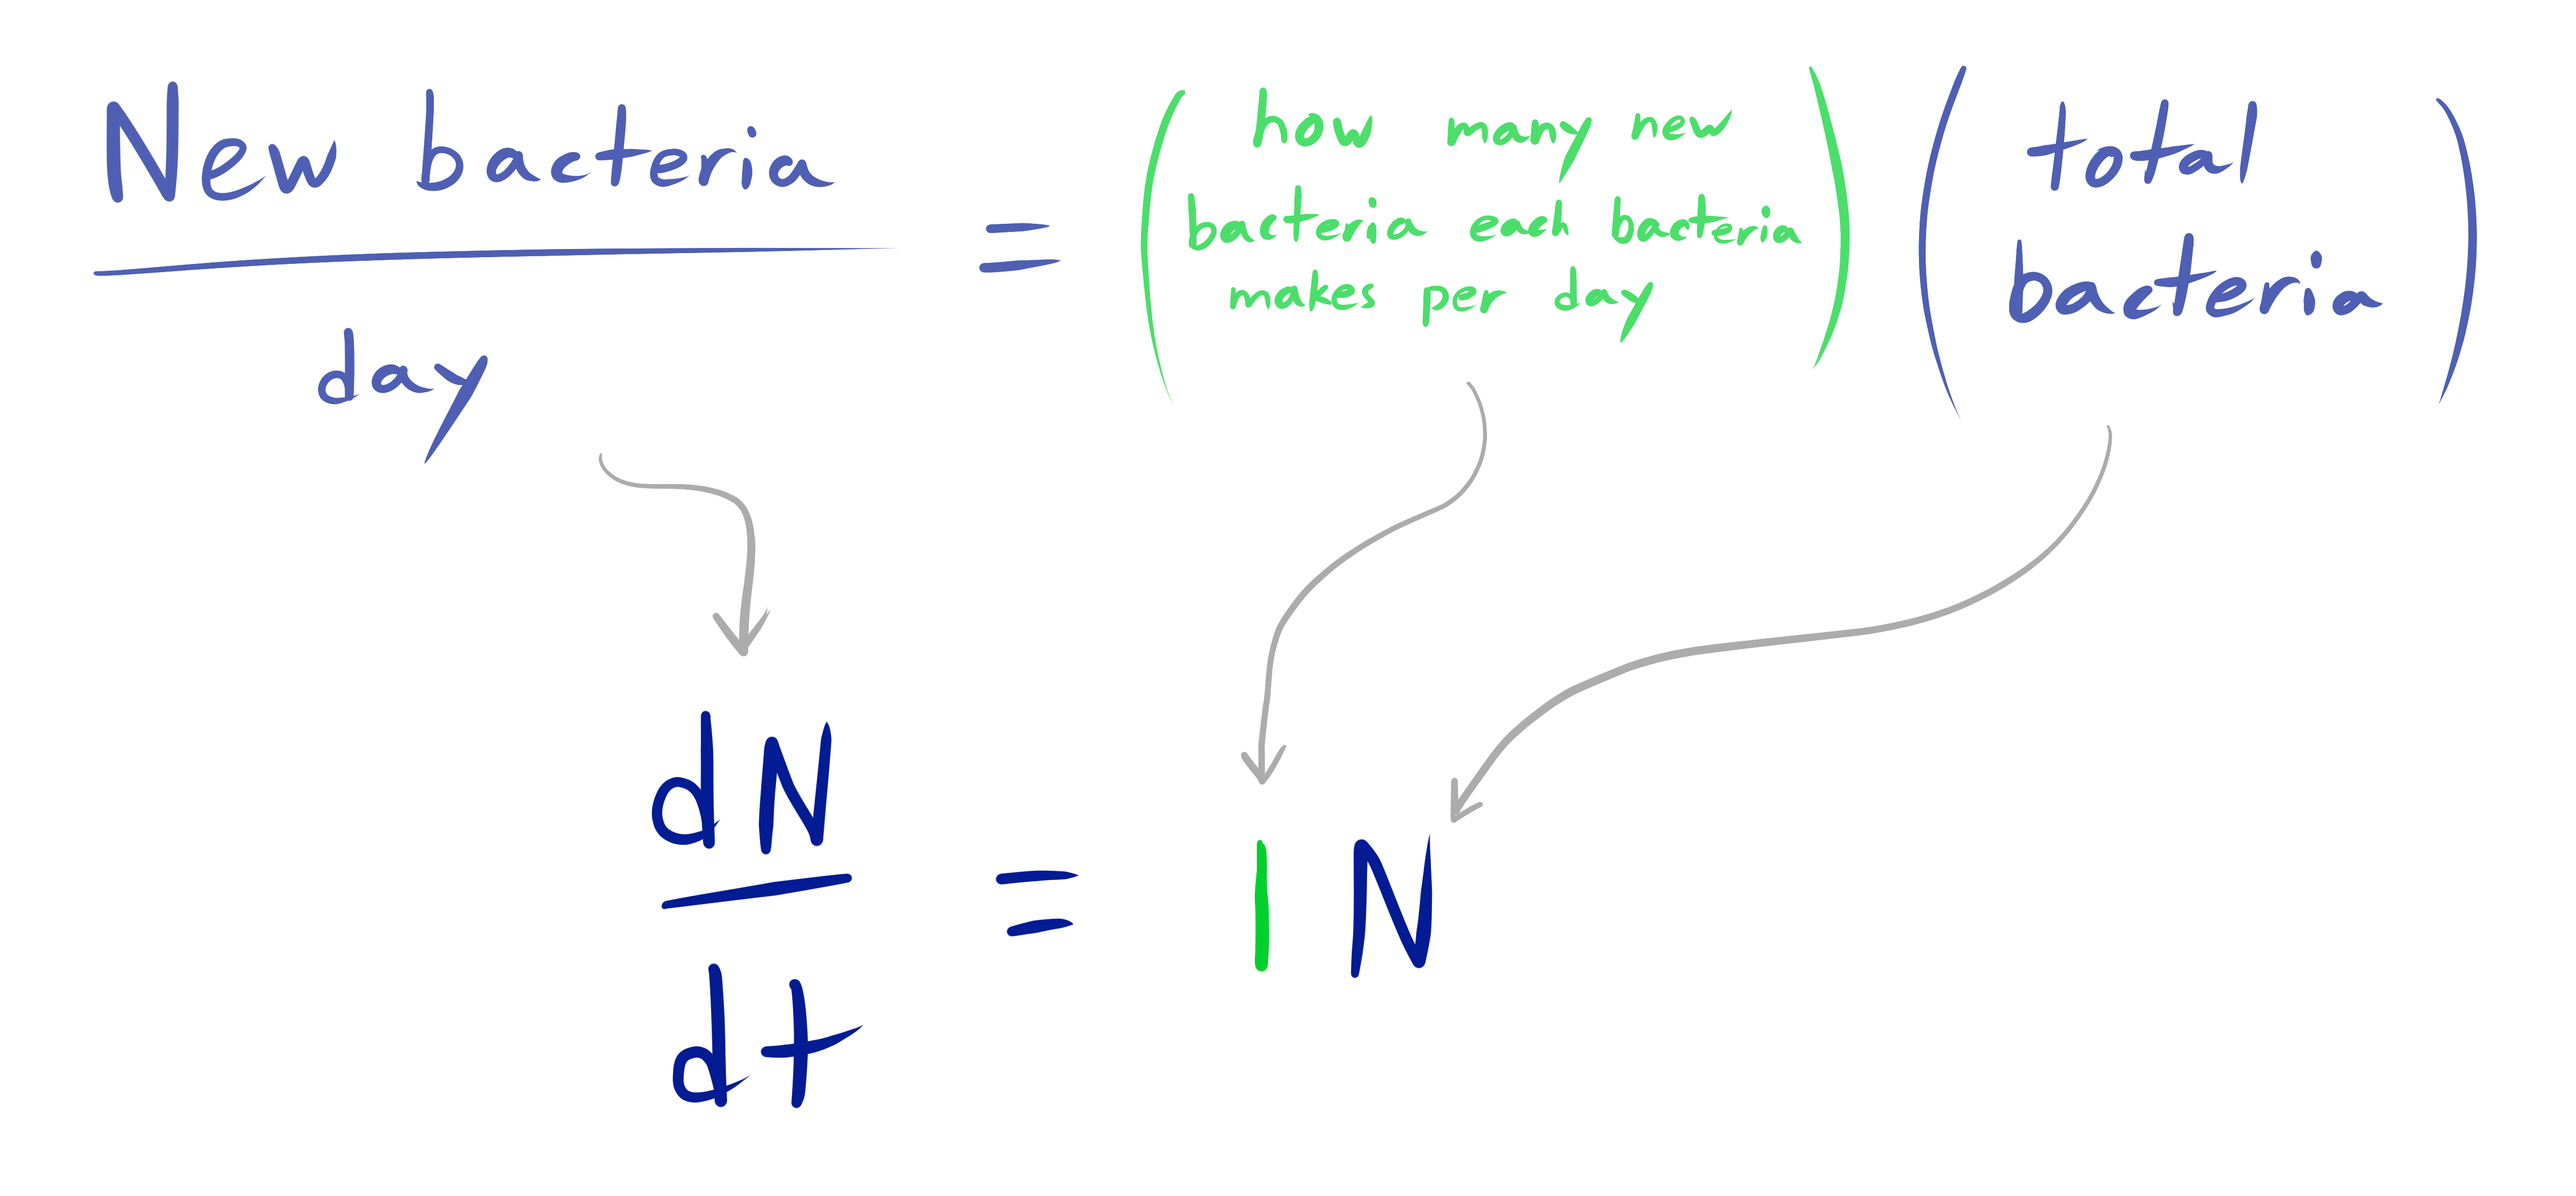 New bacteria
day
=
how many new
bacteria each bacteria
makes per day
total
bacteria
dN
dt
= 1 N